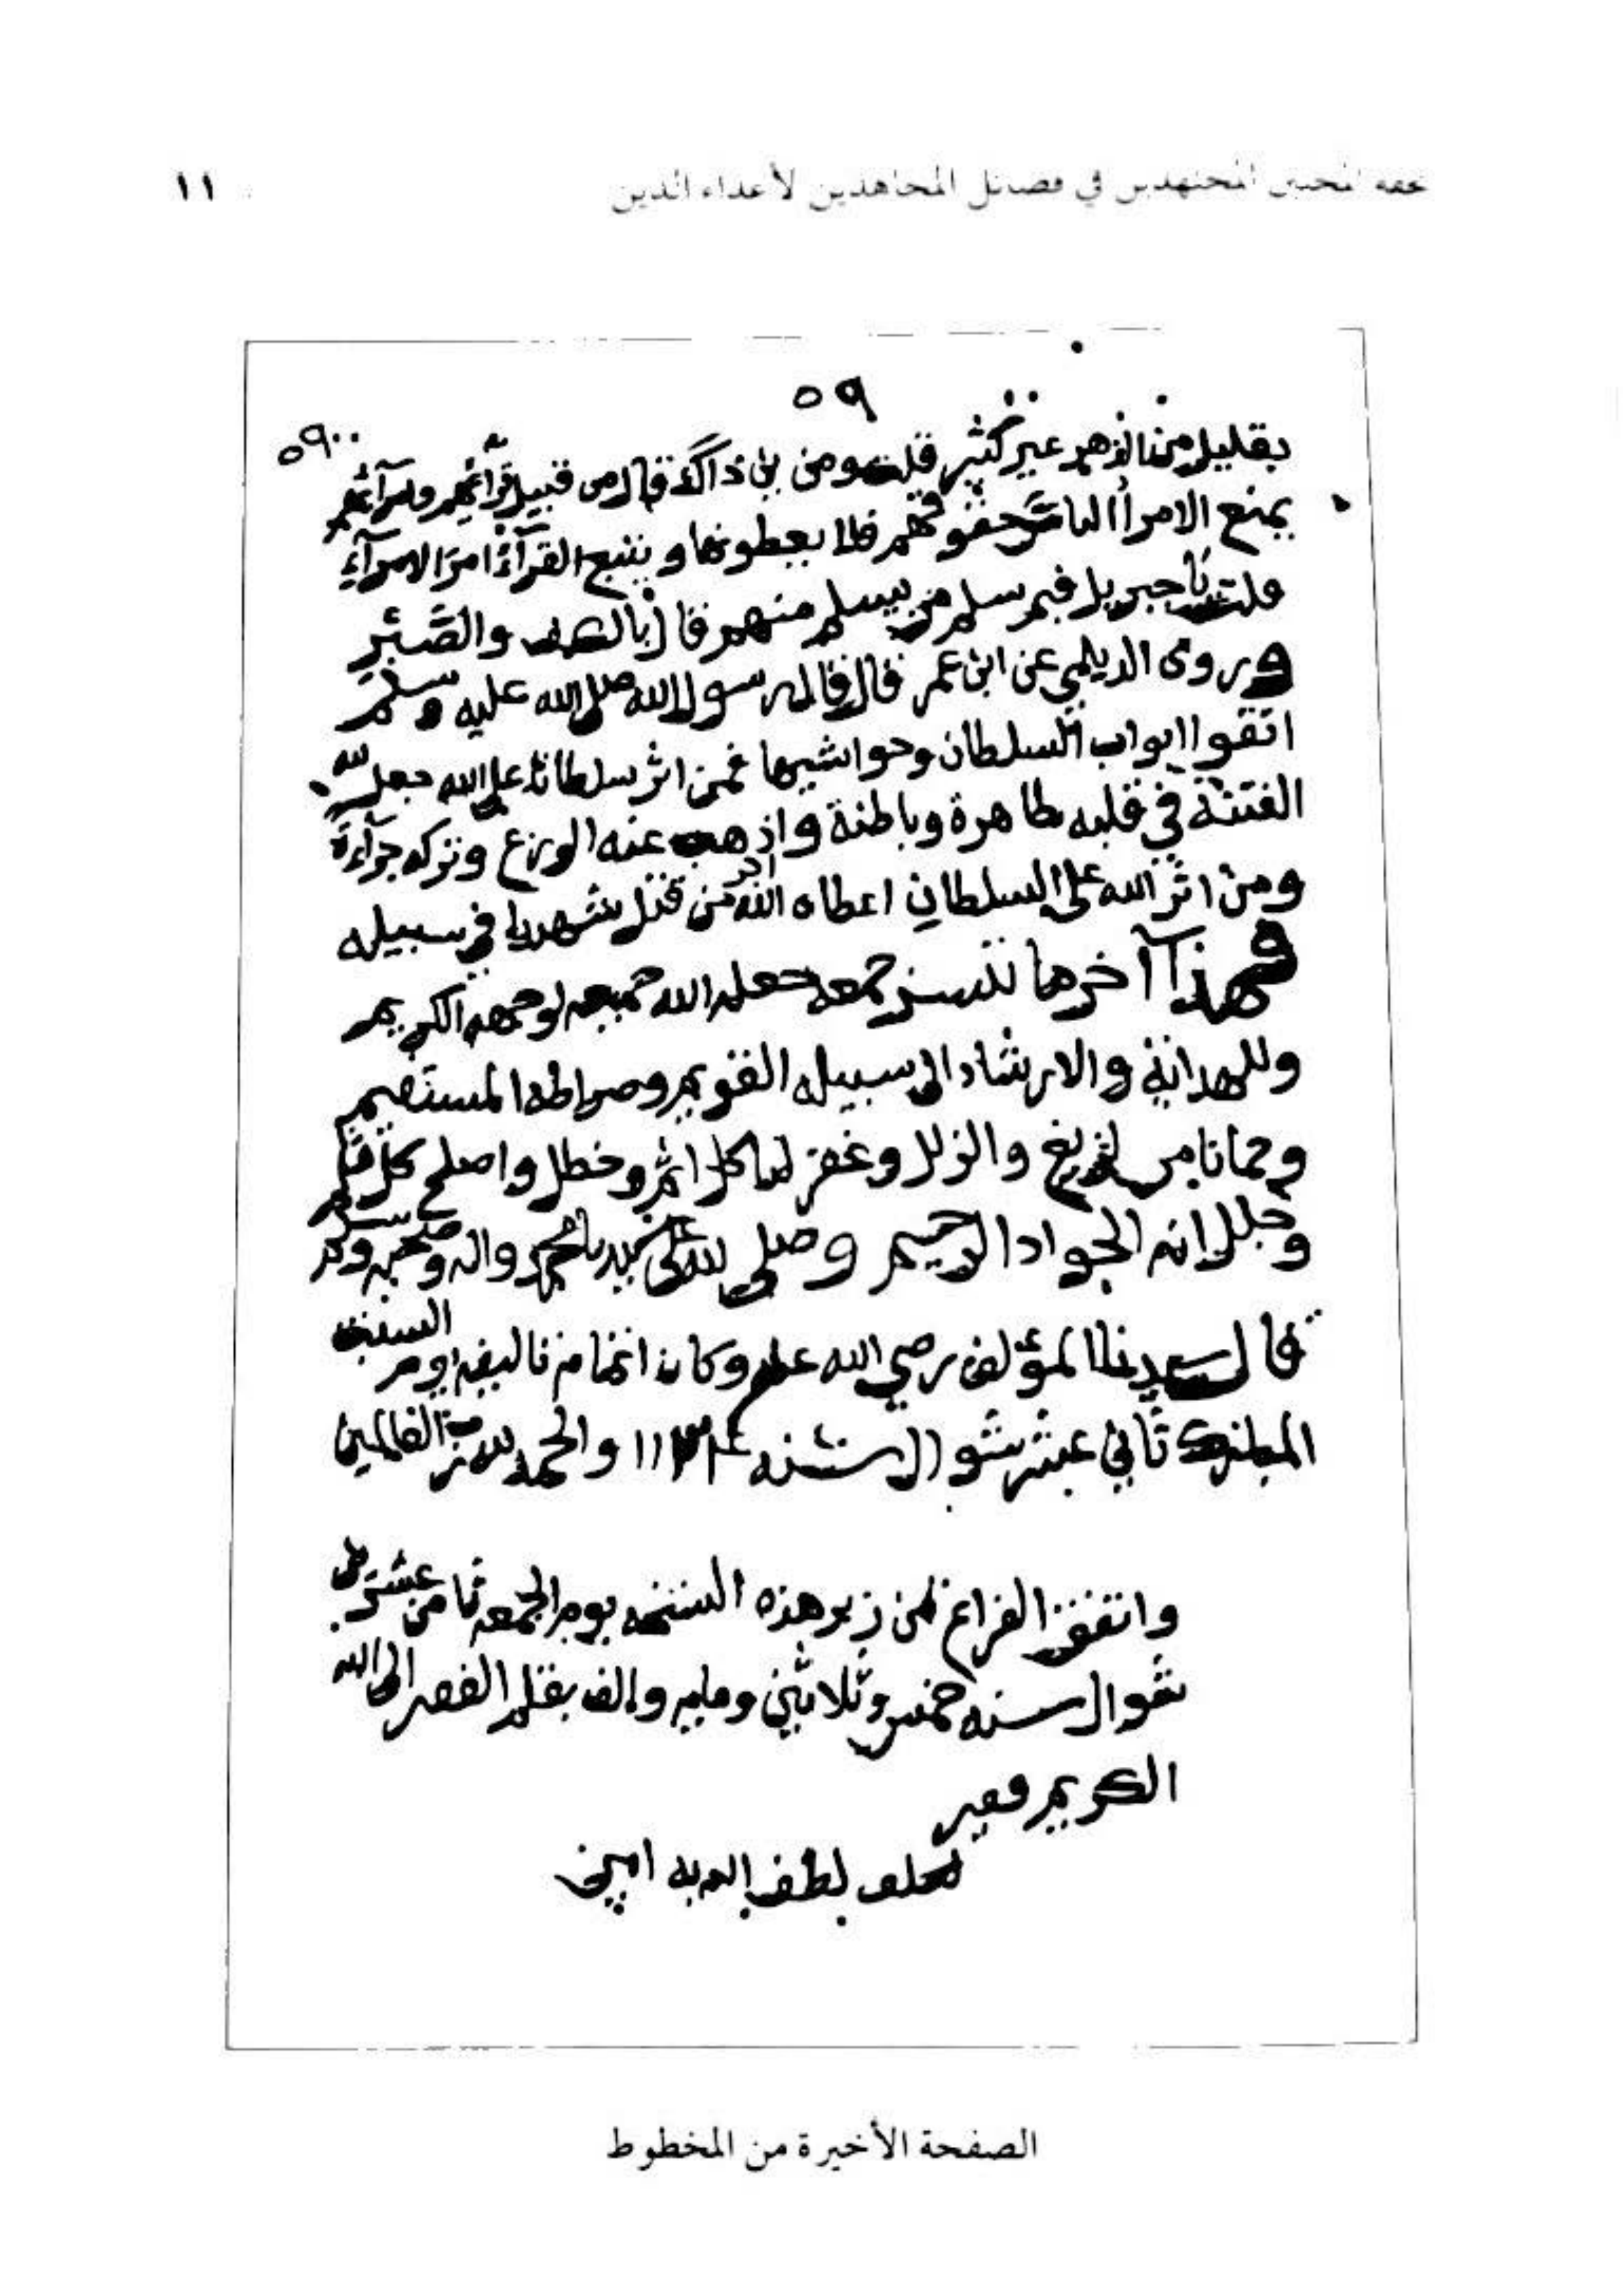 تحفة المحبين المجتهدين في فضائل المجاهدين لأعداء الدين ١١
٥٩
٥٩٠٠
بقليل من الدهر غير كثير قلت ومن اين ذاك قال من قبيل قرآئهم وامرآئهم
يمنع الامرأ الناس حقوقهم فلا يعطونها ويتبع القرآءُ امرَ الامرآءِ
قلت يا جبريل فبم سلم من يسلم منهم قال بالكف والصَّبْرِ
وروى الديلمي عن ابن عمر قال قال رسول الله صلى الله عليه وسلم
اتقوا ابواب السلطان وحواشيها فمن اثر سلطانا على الله جعل الله
الفتنة في قلبه ظاهرة وباطنة واذهب عنه الورع وتركه
ومن اثر الله على السلطان اعطاه الله اجر من قتل شهيدا في سبيله
وهذا آخر ما تيسر جمعه جعله الله جميعه لوجهه الكريم
وللهداية والارشاد الى سبيله القويم وصراطه المستقيم
وحمانا من الزيغ والزلل وغفر لنا كل اثم وخطل واصلح كل
انه الجواد الرحيم وصلى الله على سيدنا محمد واله وصحبه وسلم
قال سيدنا المؤلف رضي الله عنه وكان اتمام تاليفه يوم السبت
المبارك ثاني عشر شوال سنه والحمد لله رب العالمين
واتفق الفراغ من زبر هذه النسخه يوم الجمعه ثامن عشر
شوال سنه خمس وثلاثين ومايه والف بقلم الفقير الى الله
الكريم
لطف الله به امين
الصفحة الأخيرة من المخطوط